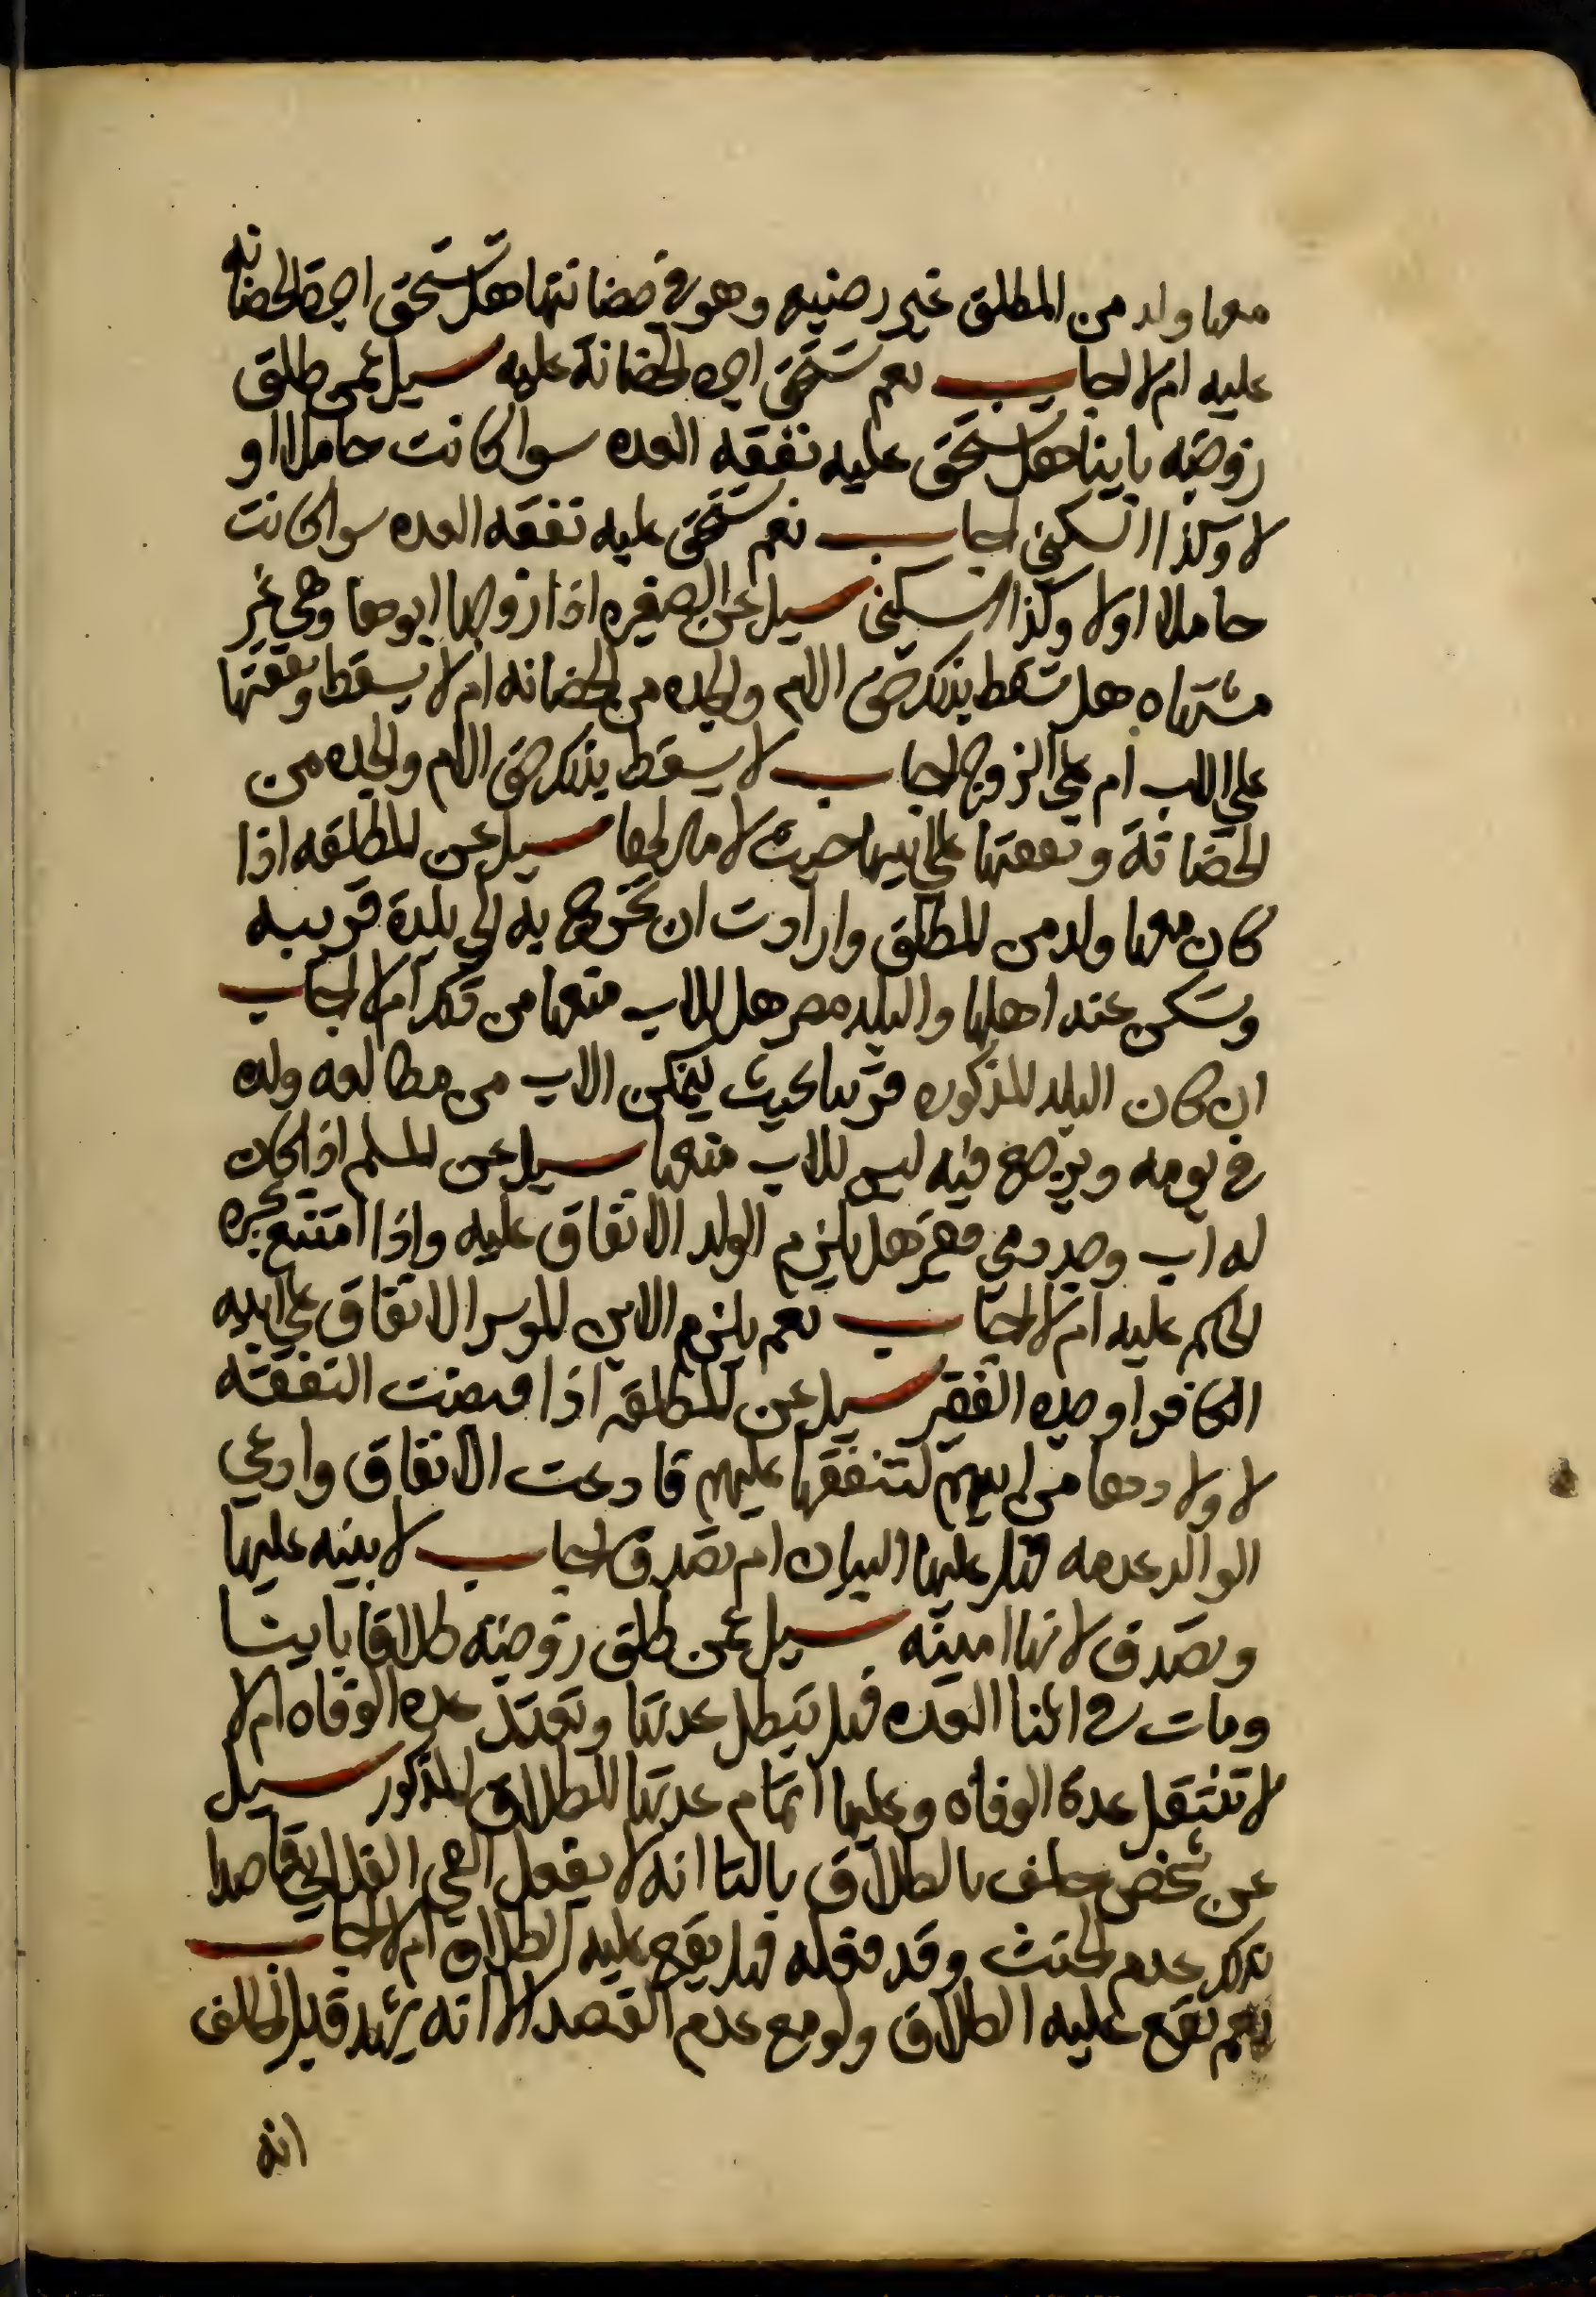 معها ولد من المطلق غير رضيع وهو في حضانتها هل تستحق اجرة الحضانه
عليه ام لا اجاب نعم تستحق اجرة الحضانة عليه سيل عمن طلق
زوجته باينا هل تستحق عليه نفقه العده سوا كانت حاملا او
لا وكذا السكنى اجاب نعم تستحق عليه نفقه العده سوا كانت
حاملا اولا وكذا السكنى سيل عن الصغيره اذا زوجها ابوها وهي غير
مشتهاه هل تسقط بذلك حق الام والجده من الحضانه ام لا يسقط ونفقتها
على الاب ام على الزوج اجاب لا يسقط بذلك حق الام والجده من
الحضانة ونفقتها على ابيها حيث لا مال لها سيل عن المطلقه اذا
كان معها ولد من المطلق وارادت ان تخرج به الى بلدة قريبه
وتسكن عند اهلها والبلد مصر هل للاب منعها من ذلك ام لا اجاب
ان كان البلد المذكوره قريبا بحيث يتمكن الاب من مطالعه ولده
في يومه ويرجع فيه ليس للاب منعها سيل عن المسلم اذا كان
له اب وجد ذمي فقير هل يلزم الولد الانفاق عليه واذا امتنع يجبره
الحاكم عليه ام لا اجاب نعم يلزم الابن الموسر الانفاق على ابيه
الكافر او جده الفقير سيل عن المطلقه اذا قبضت النفقة
لاولادها من ابيهم لتنفقها عليهم فادعت الانفاق وادعي
الوالد عدمه فهل عليها البيان ام تصدق اجاب لا بينه عليها
وتصدق لانها امينه سيل عمن طلق زوجته طلاقا باينا
ومات في اثنا العده فهل تبطل عدتها وتعتد عده الوفاه ام لا
لا تنتقل عدة الوفاه وعليها اتمام عدتها للطلاق المذكور سيل
عن شخص حلف بالطلاق بالتا انه لا يفعل الشي الفلاني قاصدا
بذلك عدم الحنث وقد فعله فهل يقع عليه الطلاق ام لا اجاب
نعم يقع عليه الطلاق ولو مع عدم القصد الا انه قبل الحالف
انه